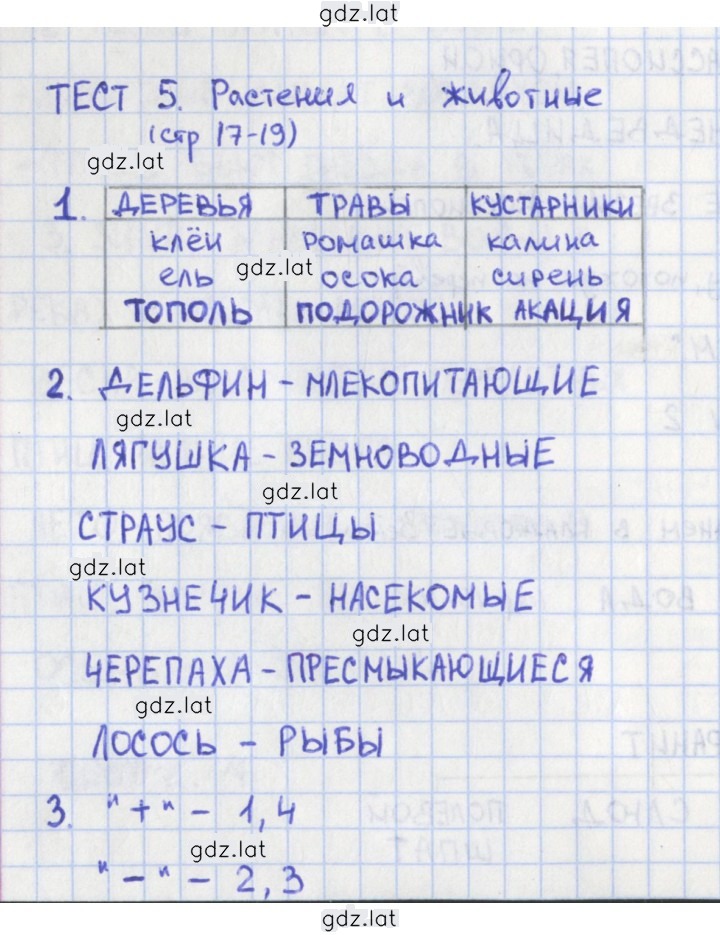 gdz.lat
ТЕСТ 5. Растения и животные
(стр 17-19)
gdz.lat
1. ДЕРЕВЬЯ ТРАВЫ КУСТАРНИКИ
клён ромашка калина
ель gdz.lat осока сирень
ТОПОЛЬ ПОДОРОЖНИК АКАЦИЯ
2. ДЕЛЬФИН - МЛЕКОПИТАЮЩИЕ
gdz.lat
ЛЯГУШКА - ЗЕМНОВОДНЫЕ
gdz.lat
СТРАУС - ПТИЦЫ
gdz.lat
КУЗНЕЧИК - НАСЕКОМЫЕ
gdz.lat
ЧЕРЕПАХА - ПРЕСМЫКАЮЩИЕСЯ
gdz.lat
ЛОСОСЬ - РЫБЫ
3. "+" - 1,4
gdz.lat
"-" - 2,3
gdz.lat